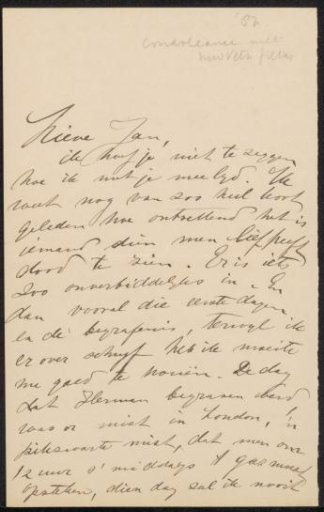 '87
Condoleance met
Lieve Jan,
ik hoef je niet te zeggen
hoe ik met je meelijd. Ik
weet nog van zoo heel kort
geleden hoe ontzettend het is
iemand dien men liefheeft
dood te zien. Er is iets
zoo onverbiddelijks in. En
dan vooral die eerste dagen,
en de begrafenis, terwijl ik
er over schrijf heb ik moeite
me goed te houden. De dag
dat Herman begraven werd
was er mist in Londen, 'n
pikzwarte mist, dat men om
12 uur 's middags 't gas moest
opsteken, dien dag zal ik nooit